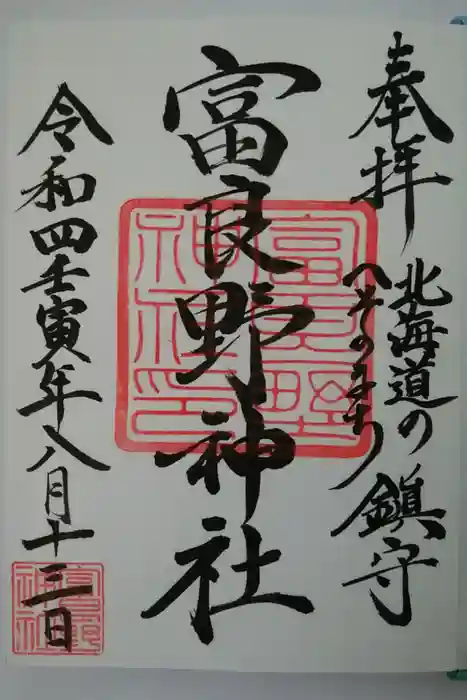 奉拝
北海道の
へそのまち
鎮守
富良野神社
富良野神社印
令和四壬寅年八月十三日
富良野神社